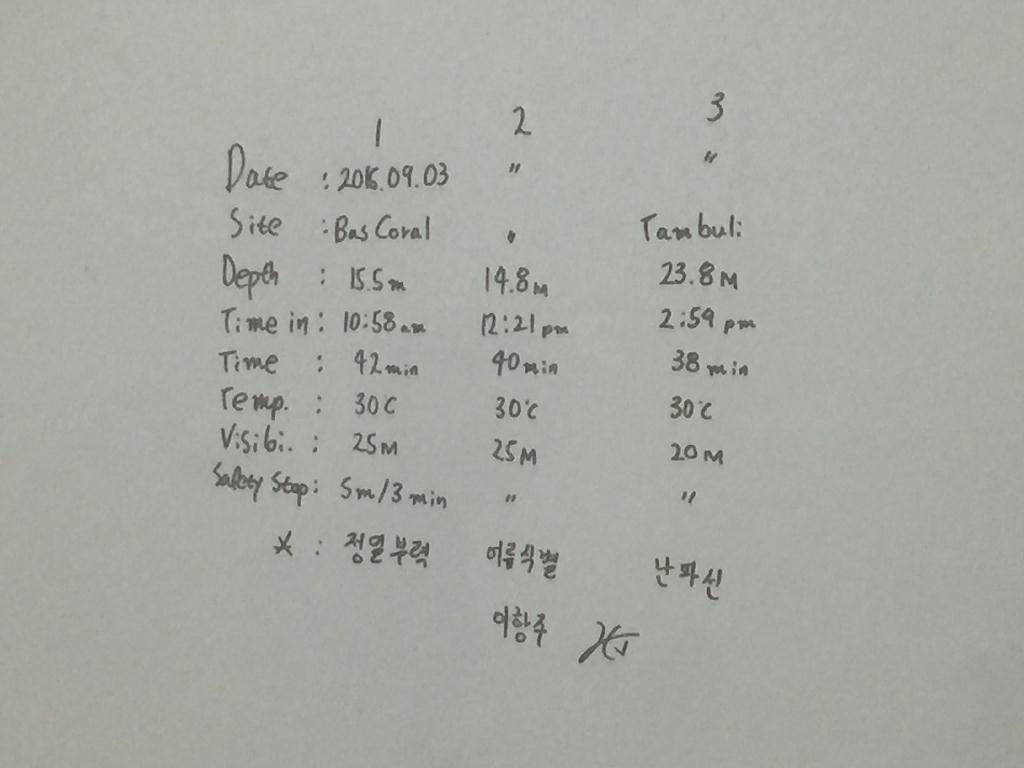 1 2 3
Date : 2016.09.03 〃 〃
Site : Bas Coral 〃 Tambuli
Depth : 15.5m 14.8M 23.8M
Time in : 10:58am 12:21pm 2:59pm
Time : 42min 40min 38min
Temp. : 30℃ 30℃ 30℃
Visibi. : 25M 25M 20M
Safety Stop : 5m/3min 〃 〃
* : 정밀부력 어류식별 난파선
이항주